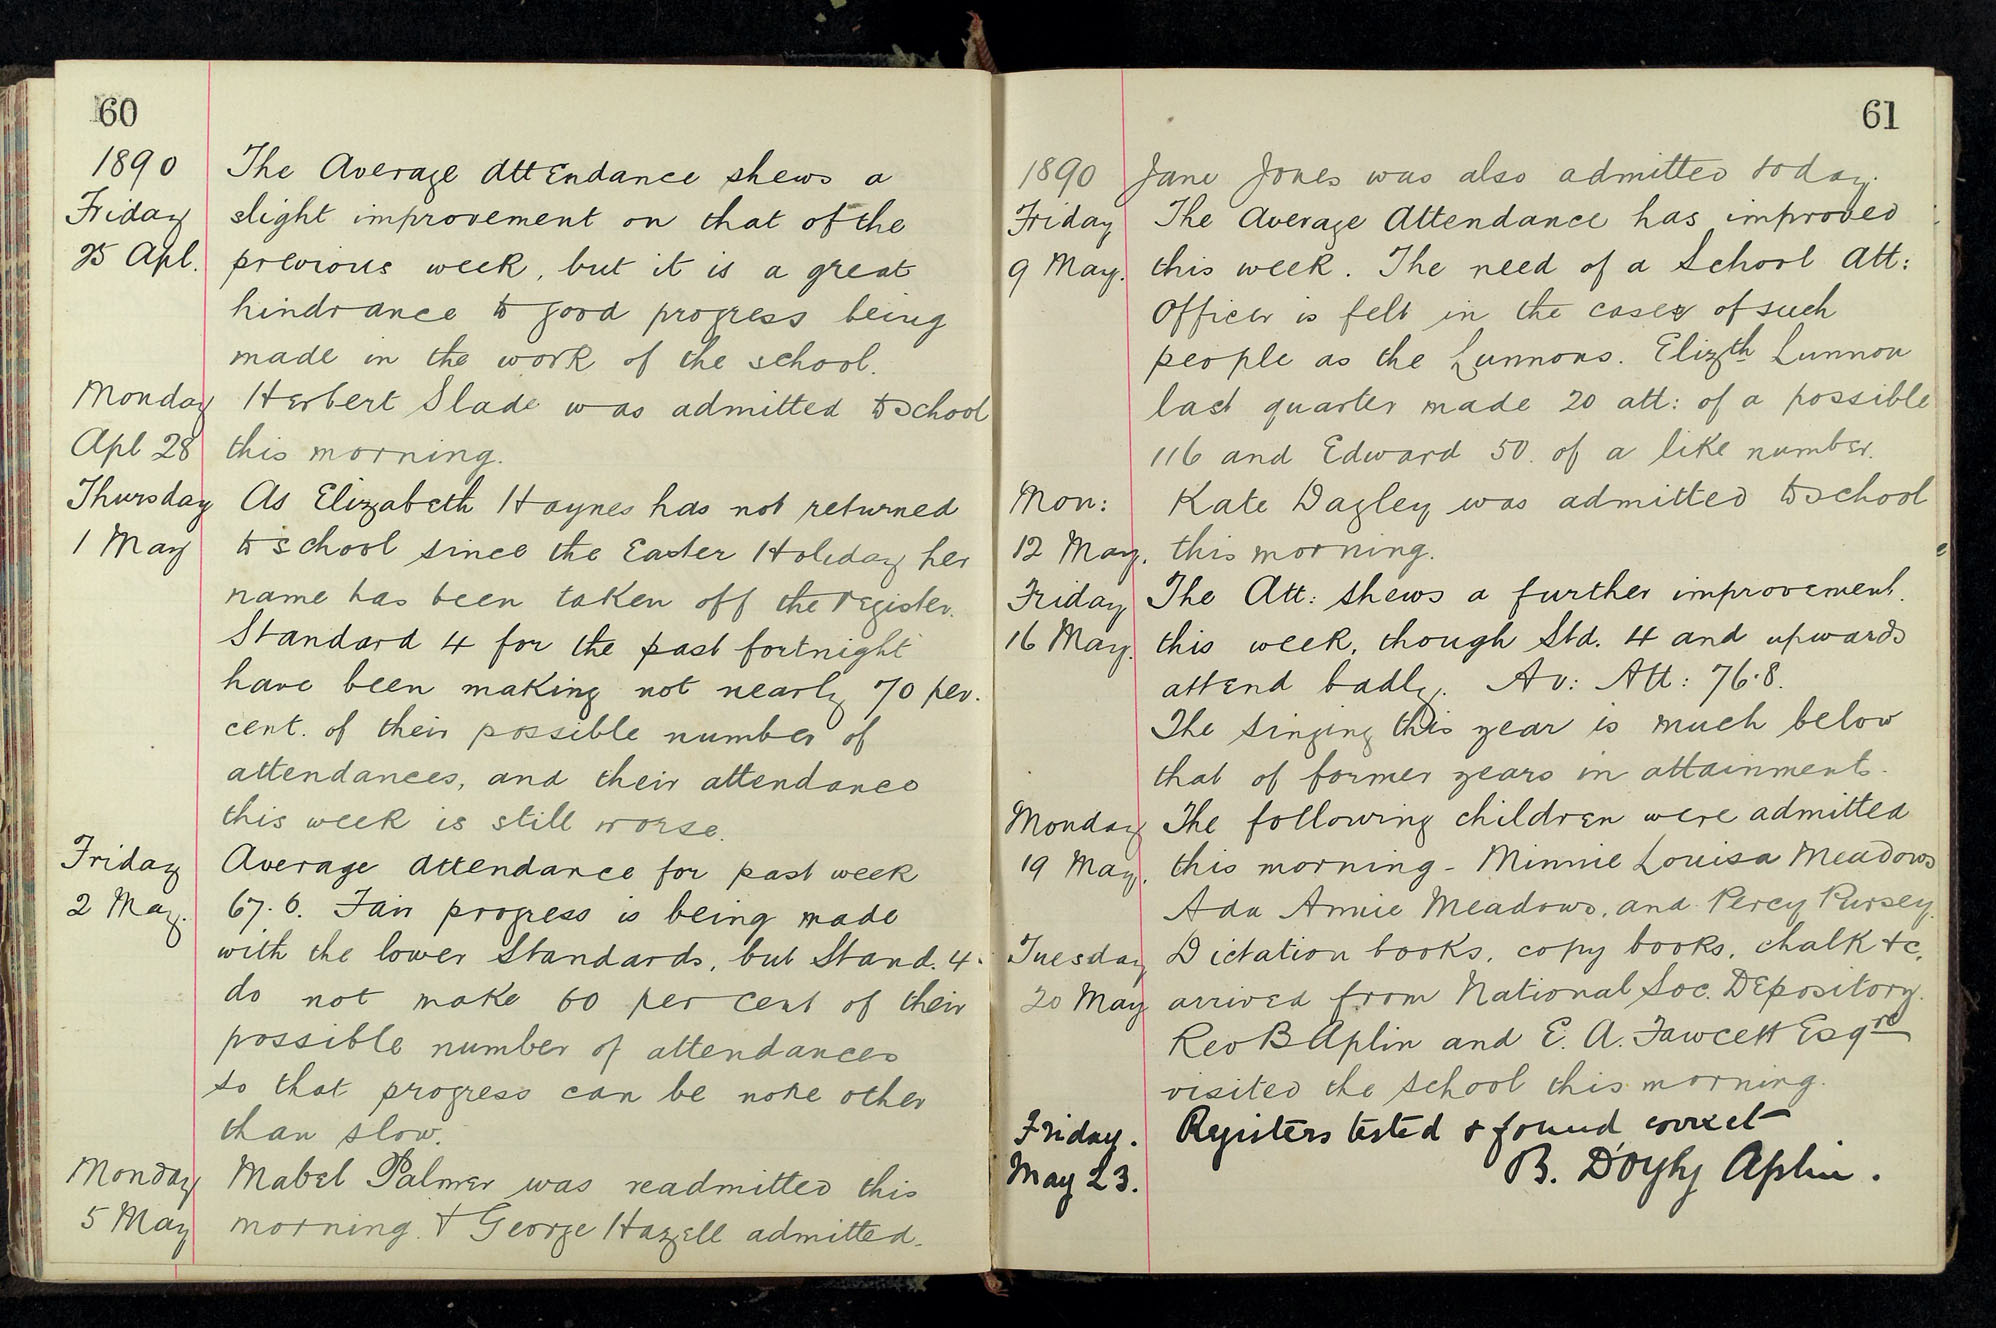 60
1890 The Average Attendance shews a
Friday slight improvement on that of the
25 Apl. previous week, but it is a great
hindrance to good progress being
made in the work of the school.
Monday Herbert Slade was admitted to school
Apl 28 this morning.
Thursday As Elizabeth Haynes has not returned
1 May to school since the Easter Holiday her
name has been taken off the register.
Standard 4 for the past fortnight
have been making not nearly 70 per.
cent. of their possible number of
attendances, and their attendance
this week is still worse.
Friday Average attendance for past week
2 May. 67.6. Fair progress is being made
with the lower Standards, but Stand. 4.
do not make 60 per cent of their
possible number of attendances
so that progress can be none other
than slow.
Monday Mabel Palmer was readmitted this
5 May morning & George Hazell admitted.
61
1890 Jane Jones was also admitted today.
Friday The Average Attendance has improved
9 May. this week. The need of a School Att:
Officer is felt in the cases of such
people as the Lunnons. Elizth Lunnon
last quarter made 20 att: of a possible
116 and Edward 50. of a like number.
Mon: Kate Dagley was admitted to school
12 May. this morning.
Friday The Att: shews a further improvement.
16 May. this week, though Std. 4 and upwards
attend badly. Av: Att: 76.8.
The singing this year is much below
that of former years in attainment.
Monday The following children were admitted
19 May. this morning - Minnie Louisa Meadows
Ada Annie Meadows, and Percy Pursey.
Tuesday Dictation books, copy books, chalk &c,
20 May arrived from National Soc. Depository.
Rev B Aplin and E. A. Fawcett Esqre
visited the school this morning.
Friday. Registers tested & found correct
May 23. B. D'Oyly Aplin.